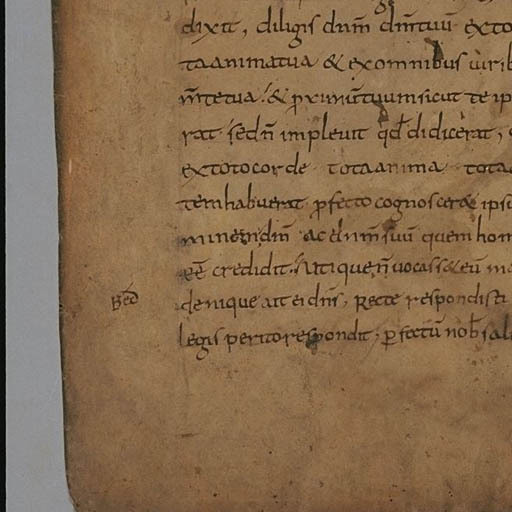 dixit, diligis dnm dm̄ tuū exto
ta anima tua & ex omnibus uirib
m̄te tua. & proximū tuum sicut te ip
rat sed n̄ impleuit qd̄ didicerat,
ex toto corde tota anima tota
tem habuerat profecto cognosceret ipsu
dn̄m ac dm̄ suū quem hom
credidit. Utique n̄ uocass& eū ma
Bed̄
denique ait ei dn̄s, Recte respondisti
legis perito respondit, perfectū nob̄